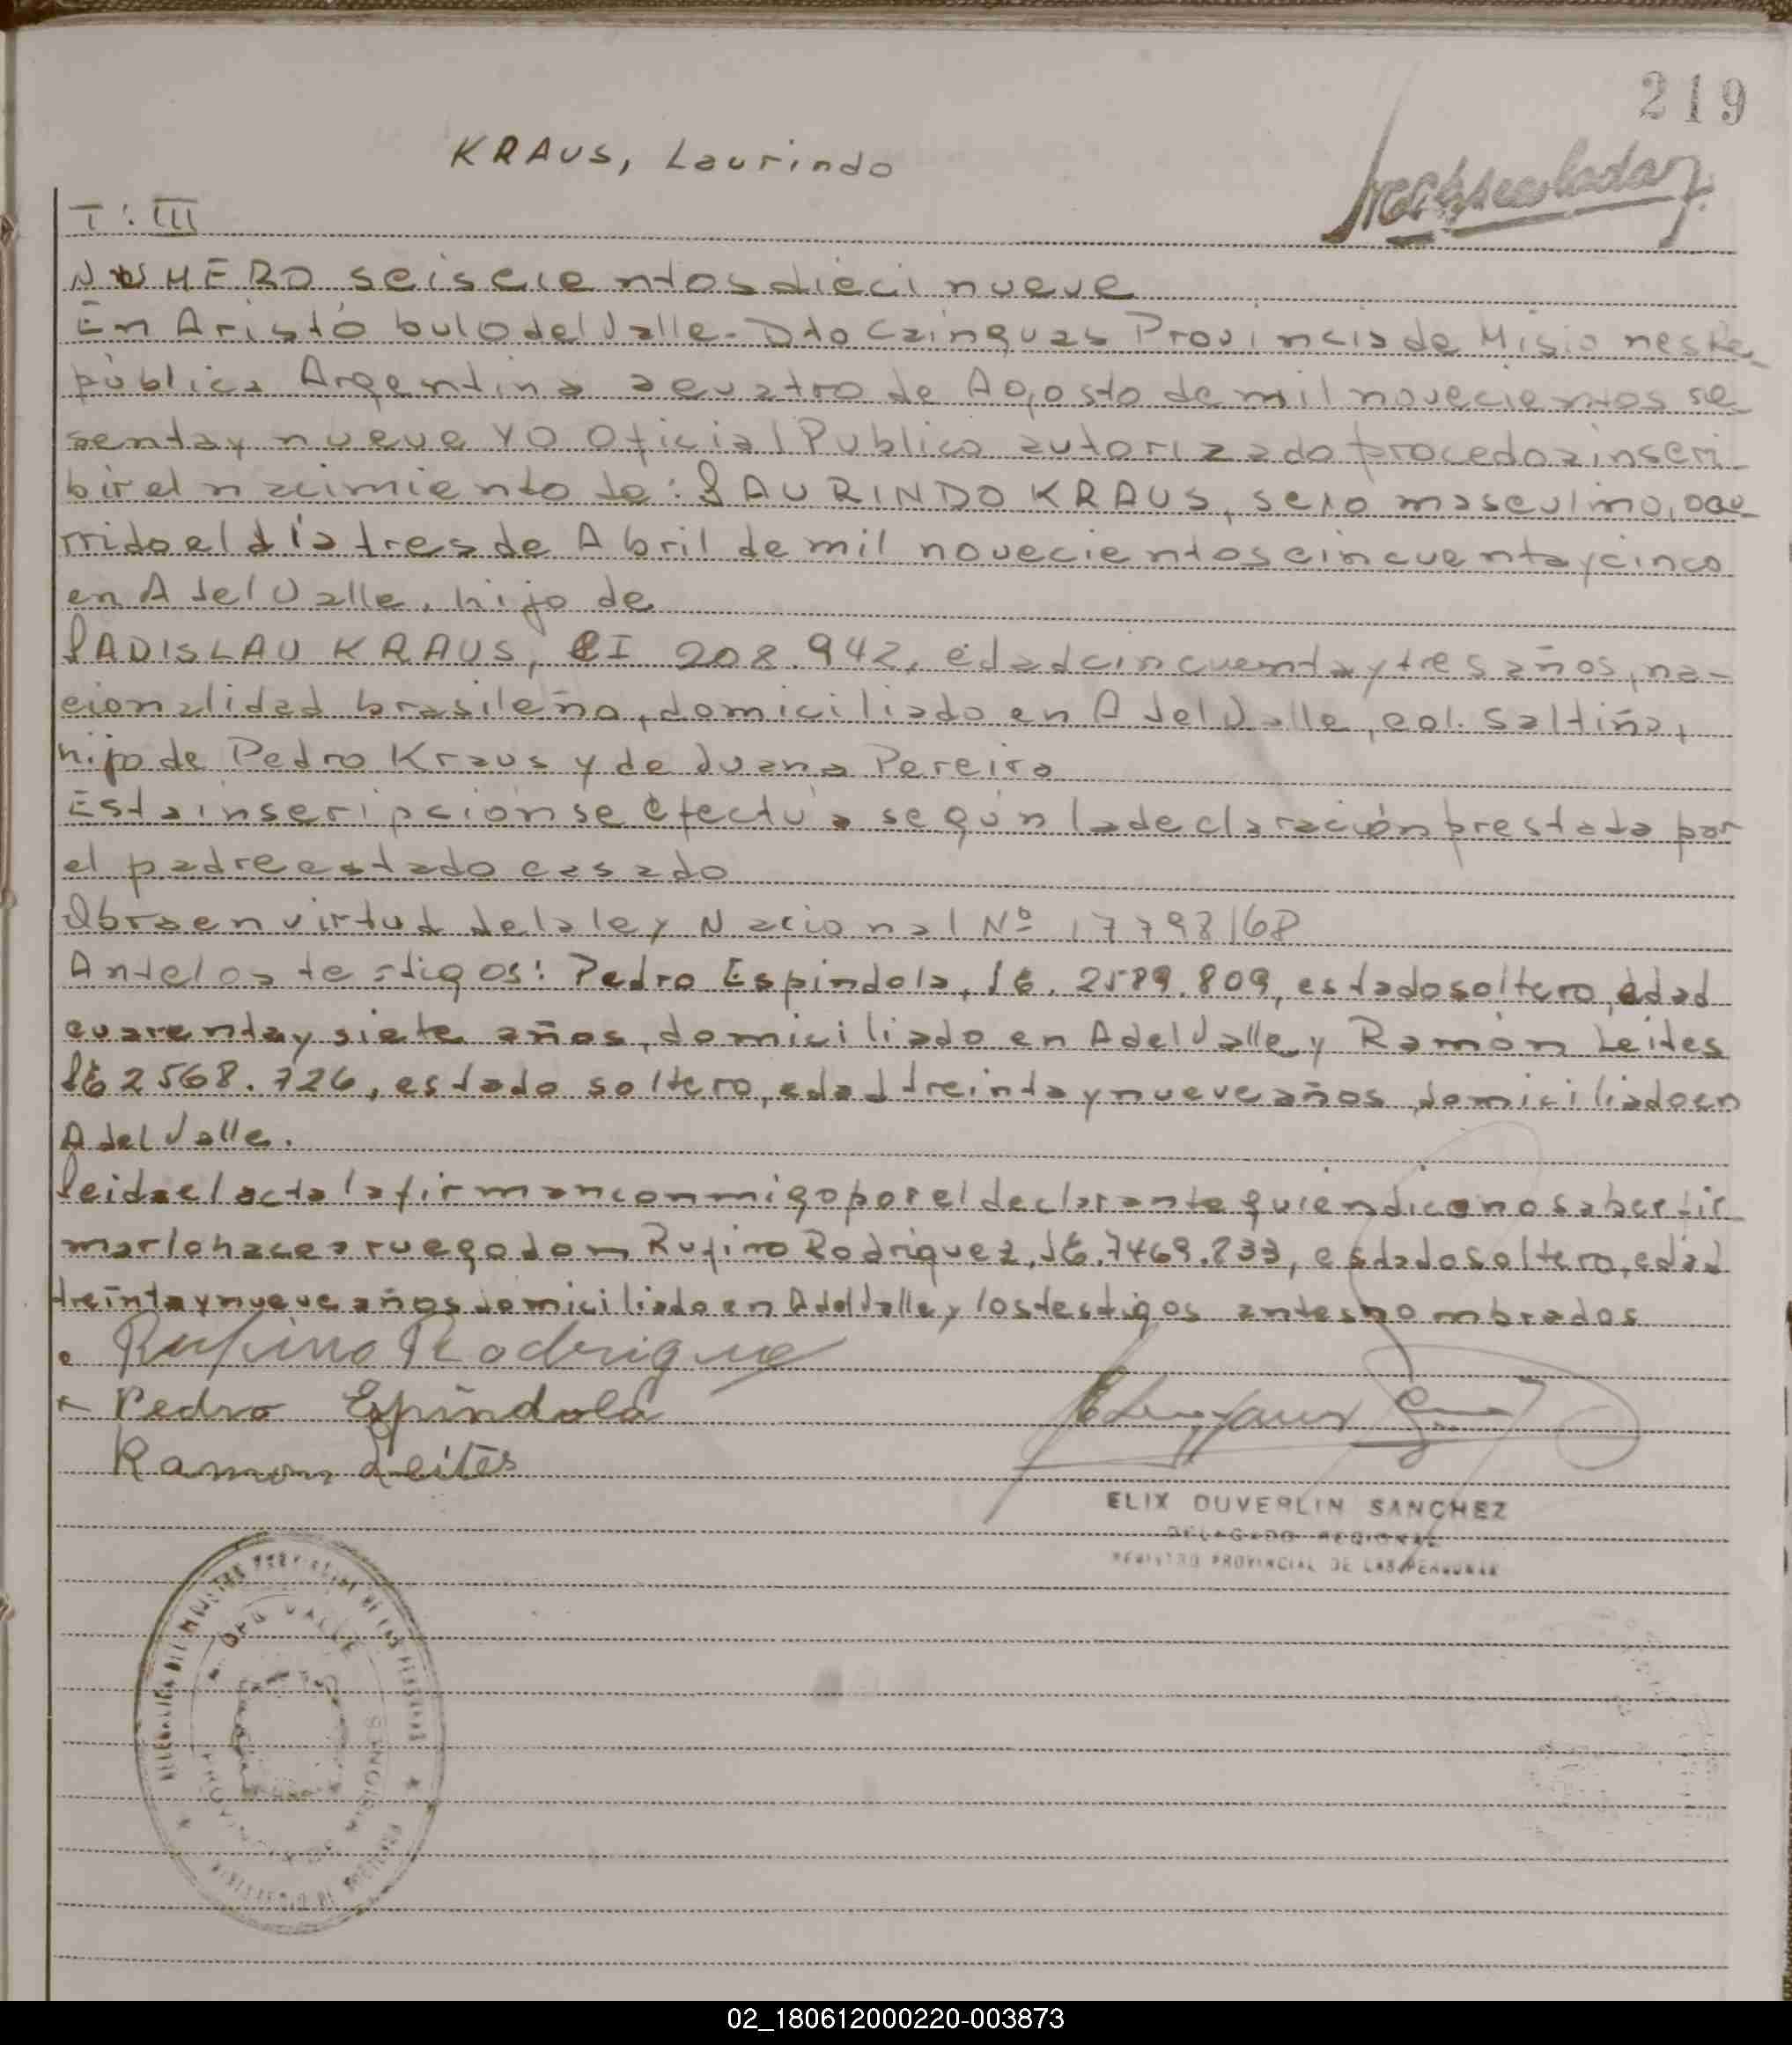 219
KRAUS, Laurindo
T: III
NUMERO seiscientos dieci nueve
En Aristóbulo del Valle - Dto Cainguas Provincia de Misiones Re-
pública Argentina a cuatro de Agosto de mil novecientos se-
senta y nueve YO Oficial Publico autorizado procedo a inscri-
bir el nacimiento de: LAURINDO KRAUS, sexo masculino, ocu-
rrido el día tres de Abril de mil novecientos cincuenta y cinco
en A del Valle, hijo de
LADISLAU KRAUS, CI 208.942, edad cincuenta y tres años, na-
cionalidad brasileño, domiciliado en A del Valle, col. Saltiño,
hijo de Pedro Kraus y de Juana Pereira
Esta inscripción se efectúa según la declaración prestada por
el padre estado casado
Obra en virtud de la ley Nacional Nº 17798/68
Ante los testigos: Pedro Espíndola, LE. 2589.809, estado soltero, edad
cuarenta y siete años, domiciliado en A del Valle y Ramón Leites
LE 2568.726, estado soltero, edad treinta y nueve años, domiciliado en
A del Valle.
Leida el acta la firman conmigo por el declarante quien dice no saber fir-
mar lo hace a ruego don Rufino Rodriguez, LE. 7469.233, estado soltero, edad
treinta y nueve años domiciliado en A del Valle y los testigos antes nombrados
Rufino Rodrigue
Pedro Espíndola
Ramon Leites
ELIX DUVERLIN SANCHEZ
DELEGADO REGIONAL
REGISTRO PROVINCIAL DE LAS PERSONAS
02_180612000220-003873